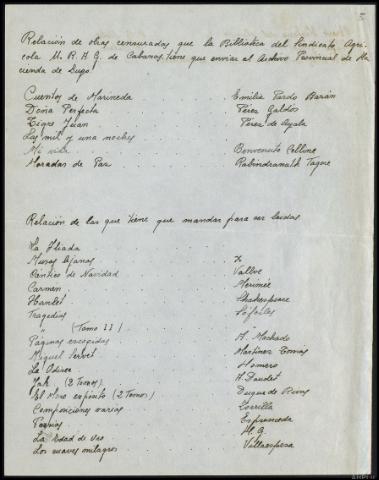 Relación de obras censuradas que la Biblioteca del Sindicato Agrí-
cola M. R. A. G. de Cabanas, tiene que enviar al Archivo Provincial de Ha-
cienda de Lugo.
Cuentos de Marineda Emilia Pardo Bazán
Doña Perfecta Pérez Galdós
Tigre Juan Pérez de Ayala
Las mil y una noches
Mi vida Benvenuto Celline
Moradas de Paz Rabindranath Tagore
Relación de las que tiene que mandar para ser leidas
La Iliada
Musas lejanas X
Centico de Navidad Vallve
Carmen Merimée
Hamlet Shakespeare
Tragedias Sófocles
" (Tomo II)
Páginas escogidas A. Machado
Miguel Servet Martinez
La Odisea Homero
Jak (2 Tomos) A. Daudet
El Moro expósito (2 Tomos) Duque de Rivas
Composiciones varias Zorrilla
Poesías Espronceda
La Edad de Oro H. G.
Los suaves milagros Villaespesa